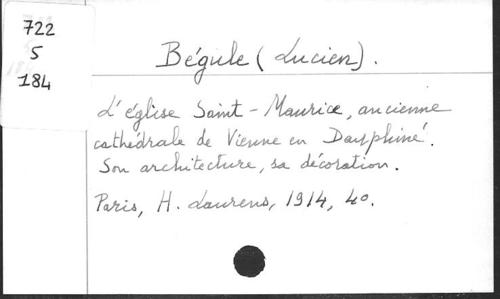 722
5
184
Bégule (Lucien).
L'église Saint-Maurice, ancienne
cathédrale de Vienne en Dauphiné.
Son architecture, sa décoration.
Paris, H. Laurens, 1914, 4o.